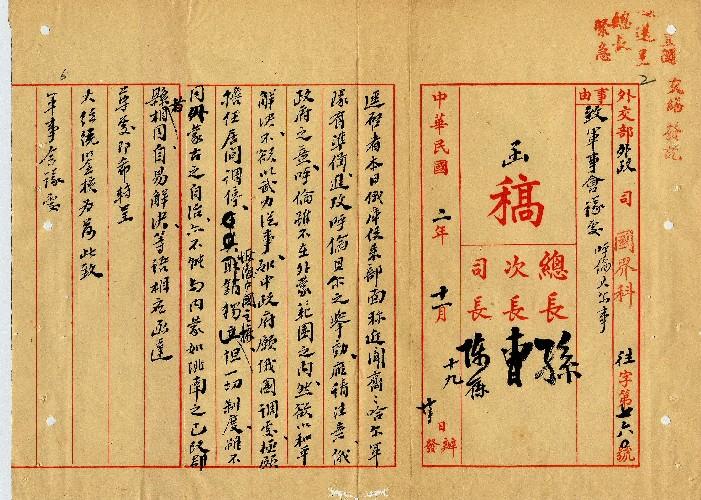 總長
緊急
外交部外政司國界科 往字第
號
事由
致軍事會議處 呼倫貝爾事
函
稿
總長 孫
次長 曹
司長 陳籙
中華民國二年十一月十九日辦
發
逕啓者本日俄庫使來部面稱近聞齊齊哈爾軍
隊有準備進攻呼倫貝爾之舉動應請注意俄
政府之意呼倫雖不在外蒙範圍之內然欲以和平
解決不欲以武力從事如中政府願俄國調處極願
擔任居間調停 取銷獨立但一切制度雖不
同外蒙古之自治亦不能與內蒙如洮南之已改郡
縣者相同自易解決等語相應函達
貴處即希轉呈
大總統鑒核為荷此致
軍事會議處